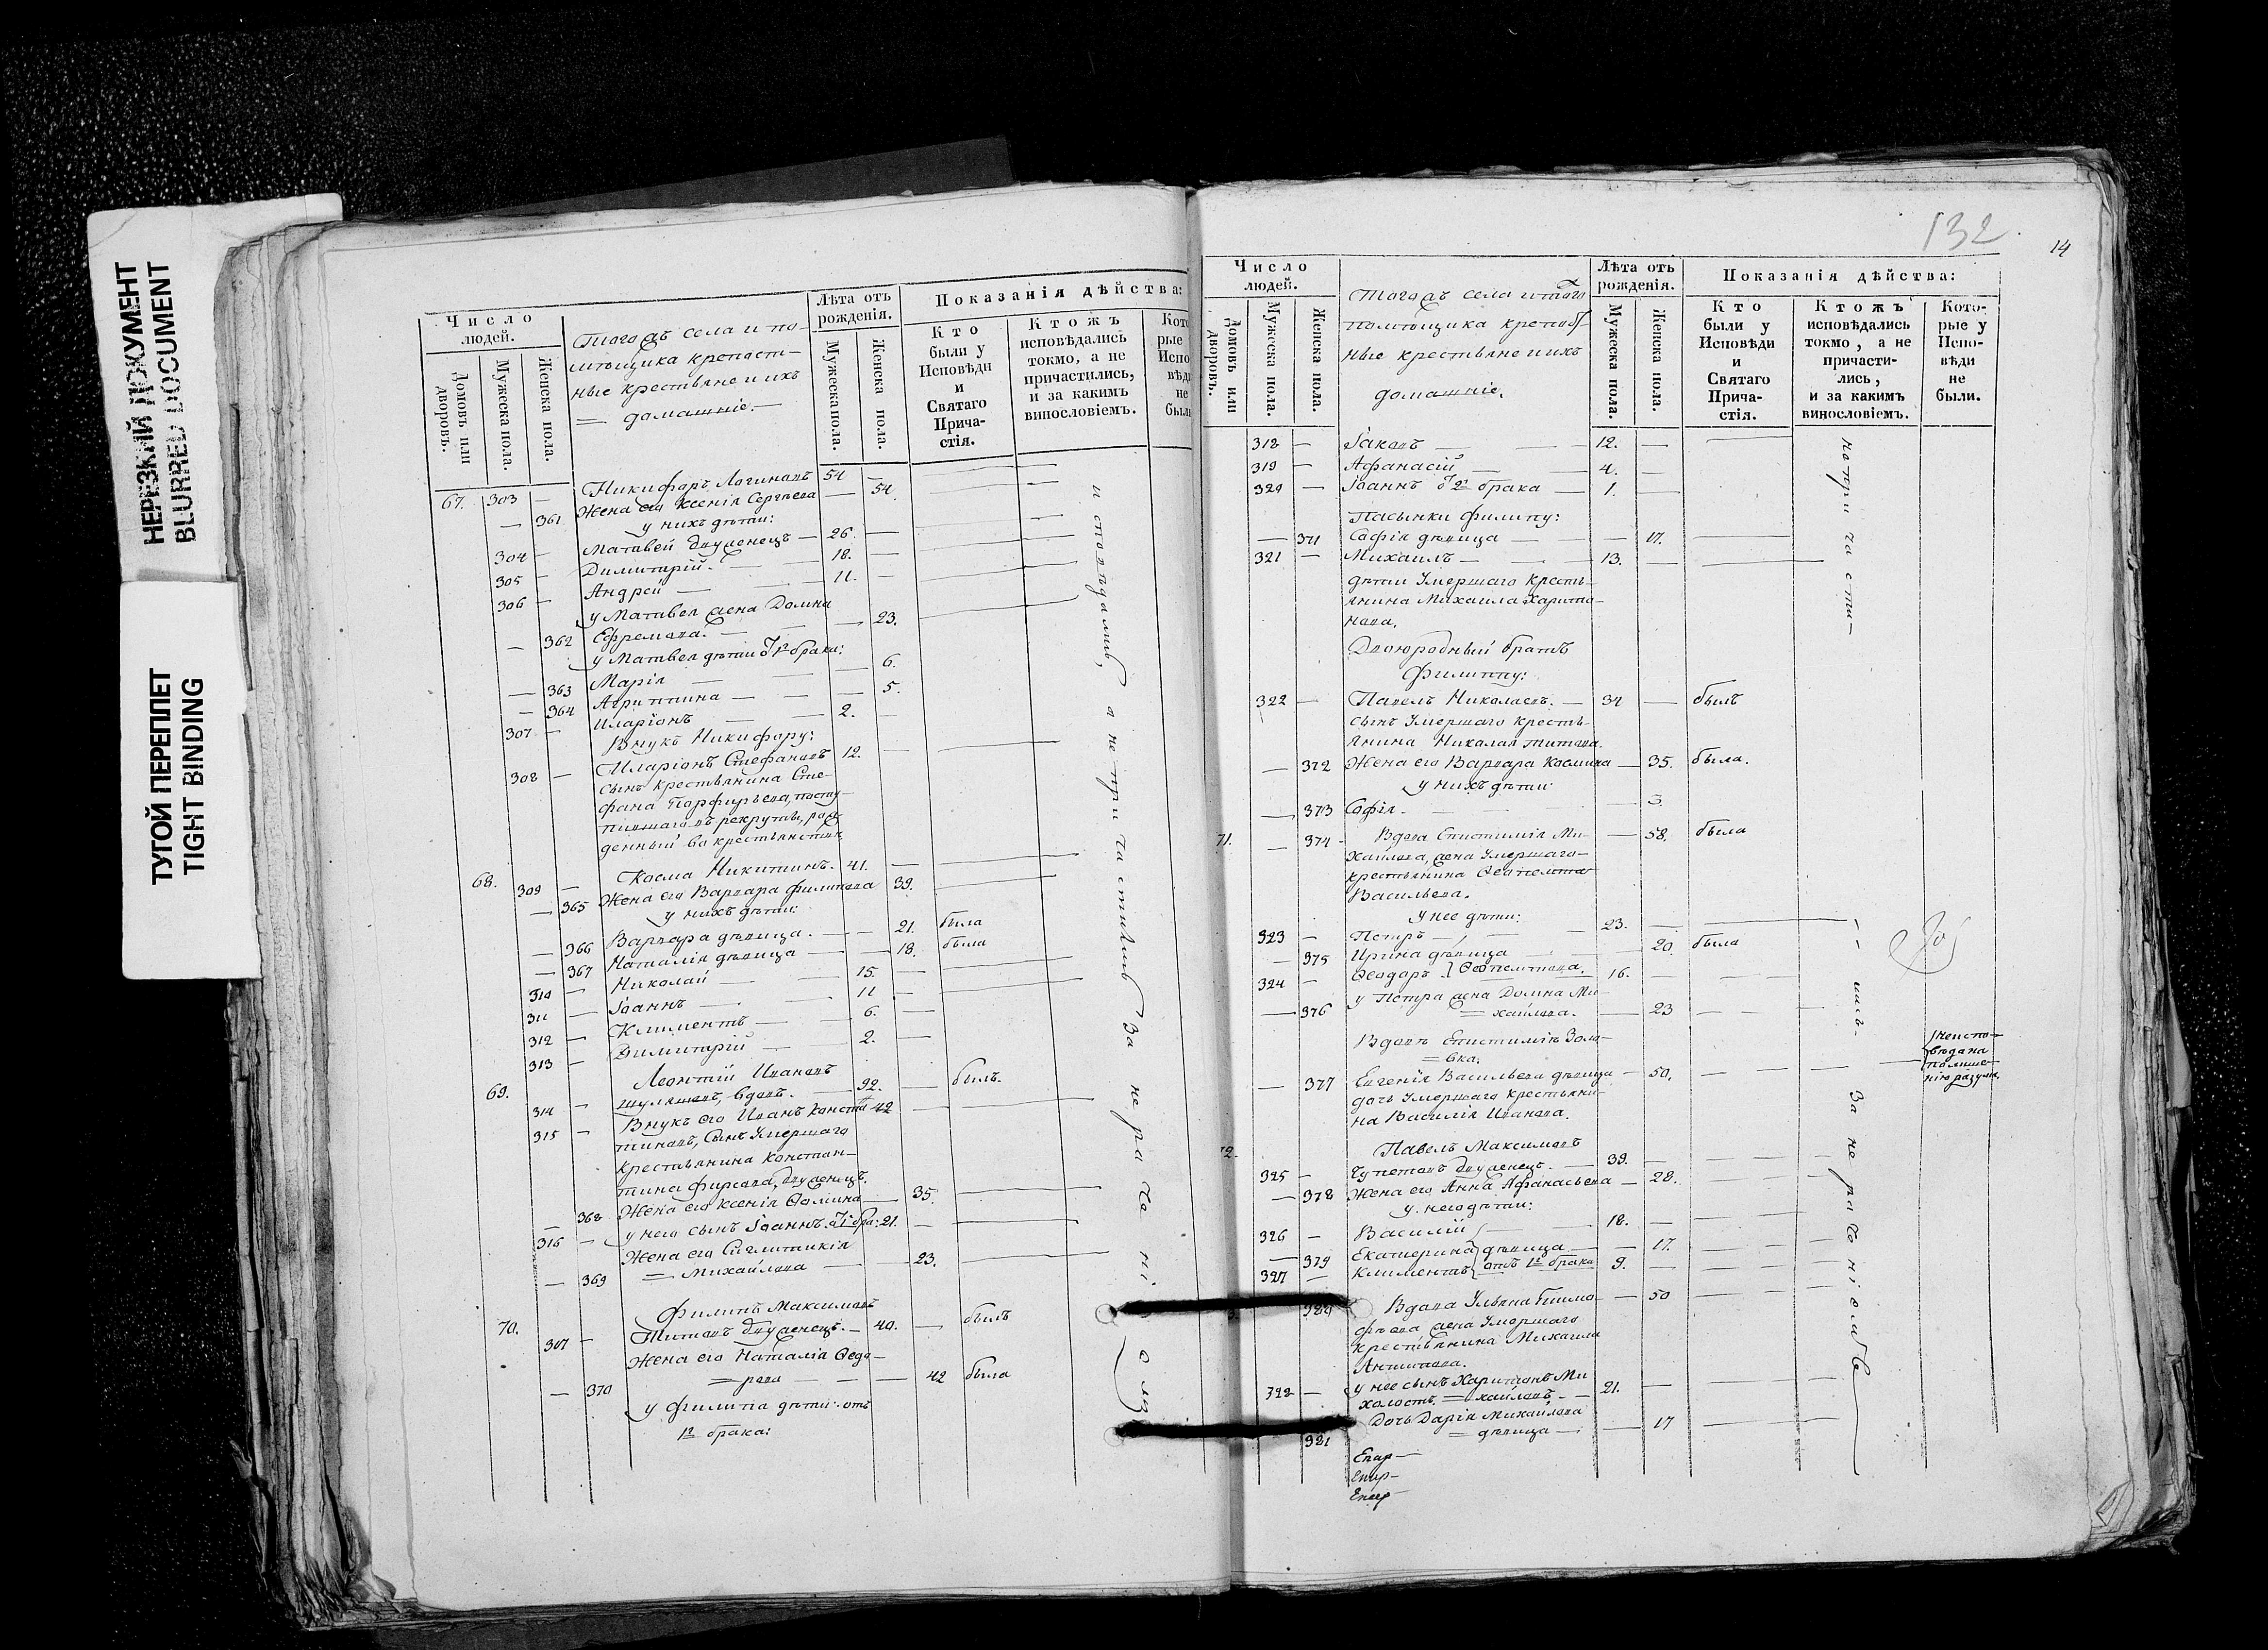 НЕРЕЗКИЙ ДОКУМЕНТ
BLURRED DOCUMENT
ТУГОЙ ПЕРЕПЛЕТ
TIGHT BINDING
Число людей.
Домовъ или дворовъ.
Мужеска пола.
Женска пола.
Тогожъ села и по-
мѣщика крѣпост-
ные крестьяне и ихъ
домашніе.
Лѣта отъ рожденія.
Мужеска пола.
Женска пола.
Показанія дѣйства:
Кто были у Исповѣди и Святаго Прича-стія.
Ктожъ исповѣдались токмо, а не причастились, и за какимъ винословіемъ.
67. 303 — Никифоръ Логиновъ 54 —
— 361 Жена его Ксенія Сергѣева — 54
у нихъ дѣти:
304 — Матвей двуженецъ — 26. —
305 — Димитрій. — 18. —
306 — Андрей — 11. —
у Матвея жена Домна
— 362 Ефремова. — — 23.
у Матвея дѣти отъ 1го брака:
— 363 Марія — — 6.
— 364 Агриппина — — 5.
307 — Иларіонъ — 2. —
Внукъ Никифору:
308 — Иларіонъ Стефановъ 12. —
сынъ крестьянина Сте-
фана Парфирьева, посту-
пившаго въ рекруты, рож-
денный въ крестьянствѣ
68. 309 — Косма Никитинъ. 41. —
— 365 Жена его Варвара Филипова 39.
у нихъ дѣти:
— 366 Варвара дѣвица. — — 21. была
— 367 Наталія дѣвица — — 18. была
310 — Николай — 15. —
311 — Іоаннъ — 11 —
312 — Климентъ — 6. —
313 — Димитрій — 2. —
69. Леонтій Ивановъ
314 — вдовъ. 92. — былъ.
315 — Внукъ его Иванъ Конста- 42 —
тиновъ, сынъ умершаго
крестьянина Констан-
тина Фирсова, двуженецъ.
— 368 Жена его Ксенія Ѳомина — 35.
316 — у него сынъ Іоаннъ отъ 1го бра: 21. —
Жена его Сигклитикія
— 369 Михайлова — — 23.
70. Филипъ Максимовъ
307 — Титовъ двуженецъ. — 40. — былъ
Жена его Наталія Ѳедо-
— 370 рова — — 42 была
у Филипа дѣти: отъ
1го брака:
исповѣдались, а не причастились за нераченіемъ
132
14
Число людей.
Домовъ или дворовъ.
Мужеска пола.
Женска пола.
Тогожъ села и того
помѣщика крѣпост-
ные крестьяне и ихъ
домашніе.
Лѣта отъ рожденія.
Мужеска пола.
Женска пола.
Показанія дѣйства:
Кто были у Исповѣди и Святаго Прича-стія.
Ктожъ исповѣдались токмо, а не причасти-лись, и за какимъ винословіемъ.
Кото-рые у Испо-вѣди не были.
318 — Іаковъ — 12. —
319 — Афанасій — 4. —
320 — Іоаннъ отъ 2го брака — 1. —
Пасынки Филипу:
— 371 Софія дѣвица — — 17.
321 — Михаилъ — 13. —
дѣти умершаго кресть-
янина Михаила Харито-
нова.
Двоюродный братъ
Филиппу:
322 — Павелъ Николаевъ. — 34 — былъ
сынъ умершаго кресть-
янина Николая Титова.
— 372 Жена его Варвара Космина — 35. была.
у нихъ дѣти
— 373 Софія. — — 3.
71. — 374 Вдова Епистимія Ми- — 58. была
хайлова, жена умершаго
крестьянина Ѳеопемпта
Васильева.
у нее дѣти:
323 — Петръ — 23. —
— 375 Ирина дѣвица — 20. была
324 — Ѳеодоръ } Ѳеопемптова. 16. —
у Петра жена Домна Ми-
— 376 хайлова. — 23
Вдовѣ Епистиміѣ Золо-
вка:
— 377 Евгенія Васильева дѣвица — 50.
дочь умершаго крестьяни-
на Василія Иванова.
неиспо-
вѣдана
по лише-
нію разума.
72. Павелъ Максимовъ
325 — двуженецъ. — 39. —
— 378 Жена его Анна Афанасьева — 28.
у него дѣти:
326 — Василій 18. —
— 379 Екатерина дѣвица — 17.
327 — Климентъ отъ 1го брака 9. —
380 Вдова Ульяна Тимо- — 50
фѣева жена умершаго
крестьянина Михаила
Антипова.
328 — у нее сынъ Харитонъ Ми-
холостъ. хайловъ. — 21. —
381 Дочь Дарія Михайлова — 17
дѣвица —
непричастились за нераченіемъ